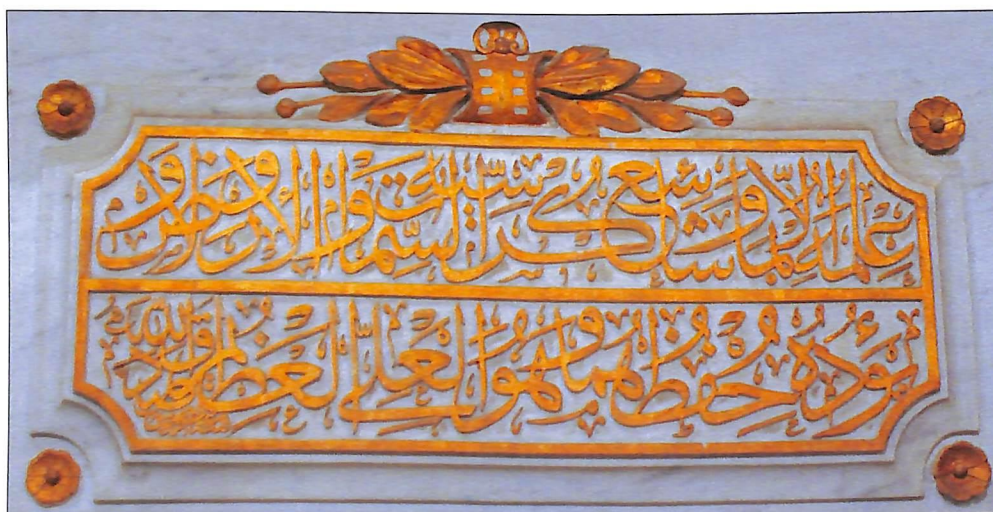 علمه إلا بما شاء وسع كرسيه السموات والأرض ولا
يؤده حفظهما وهو العلي العظيم صدق الله